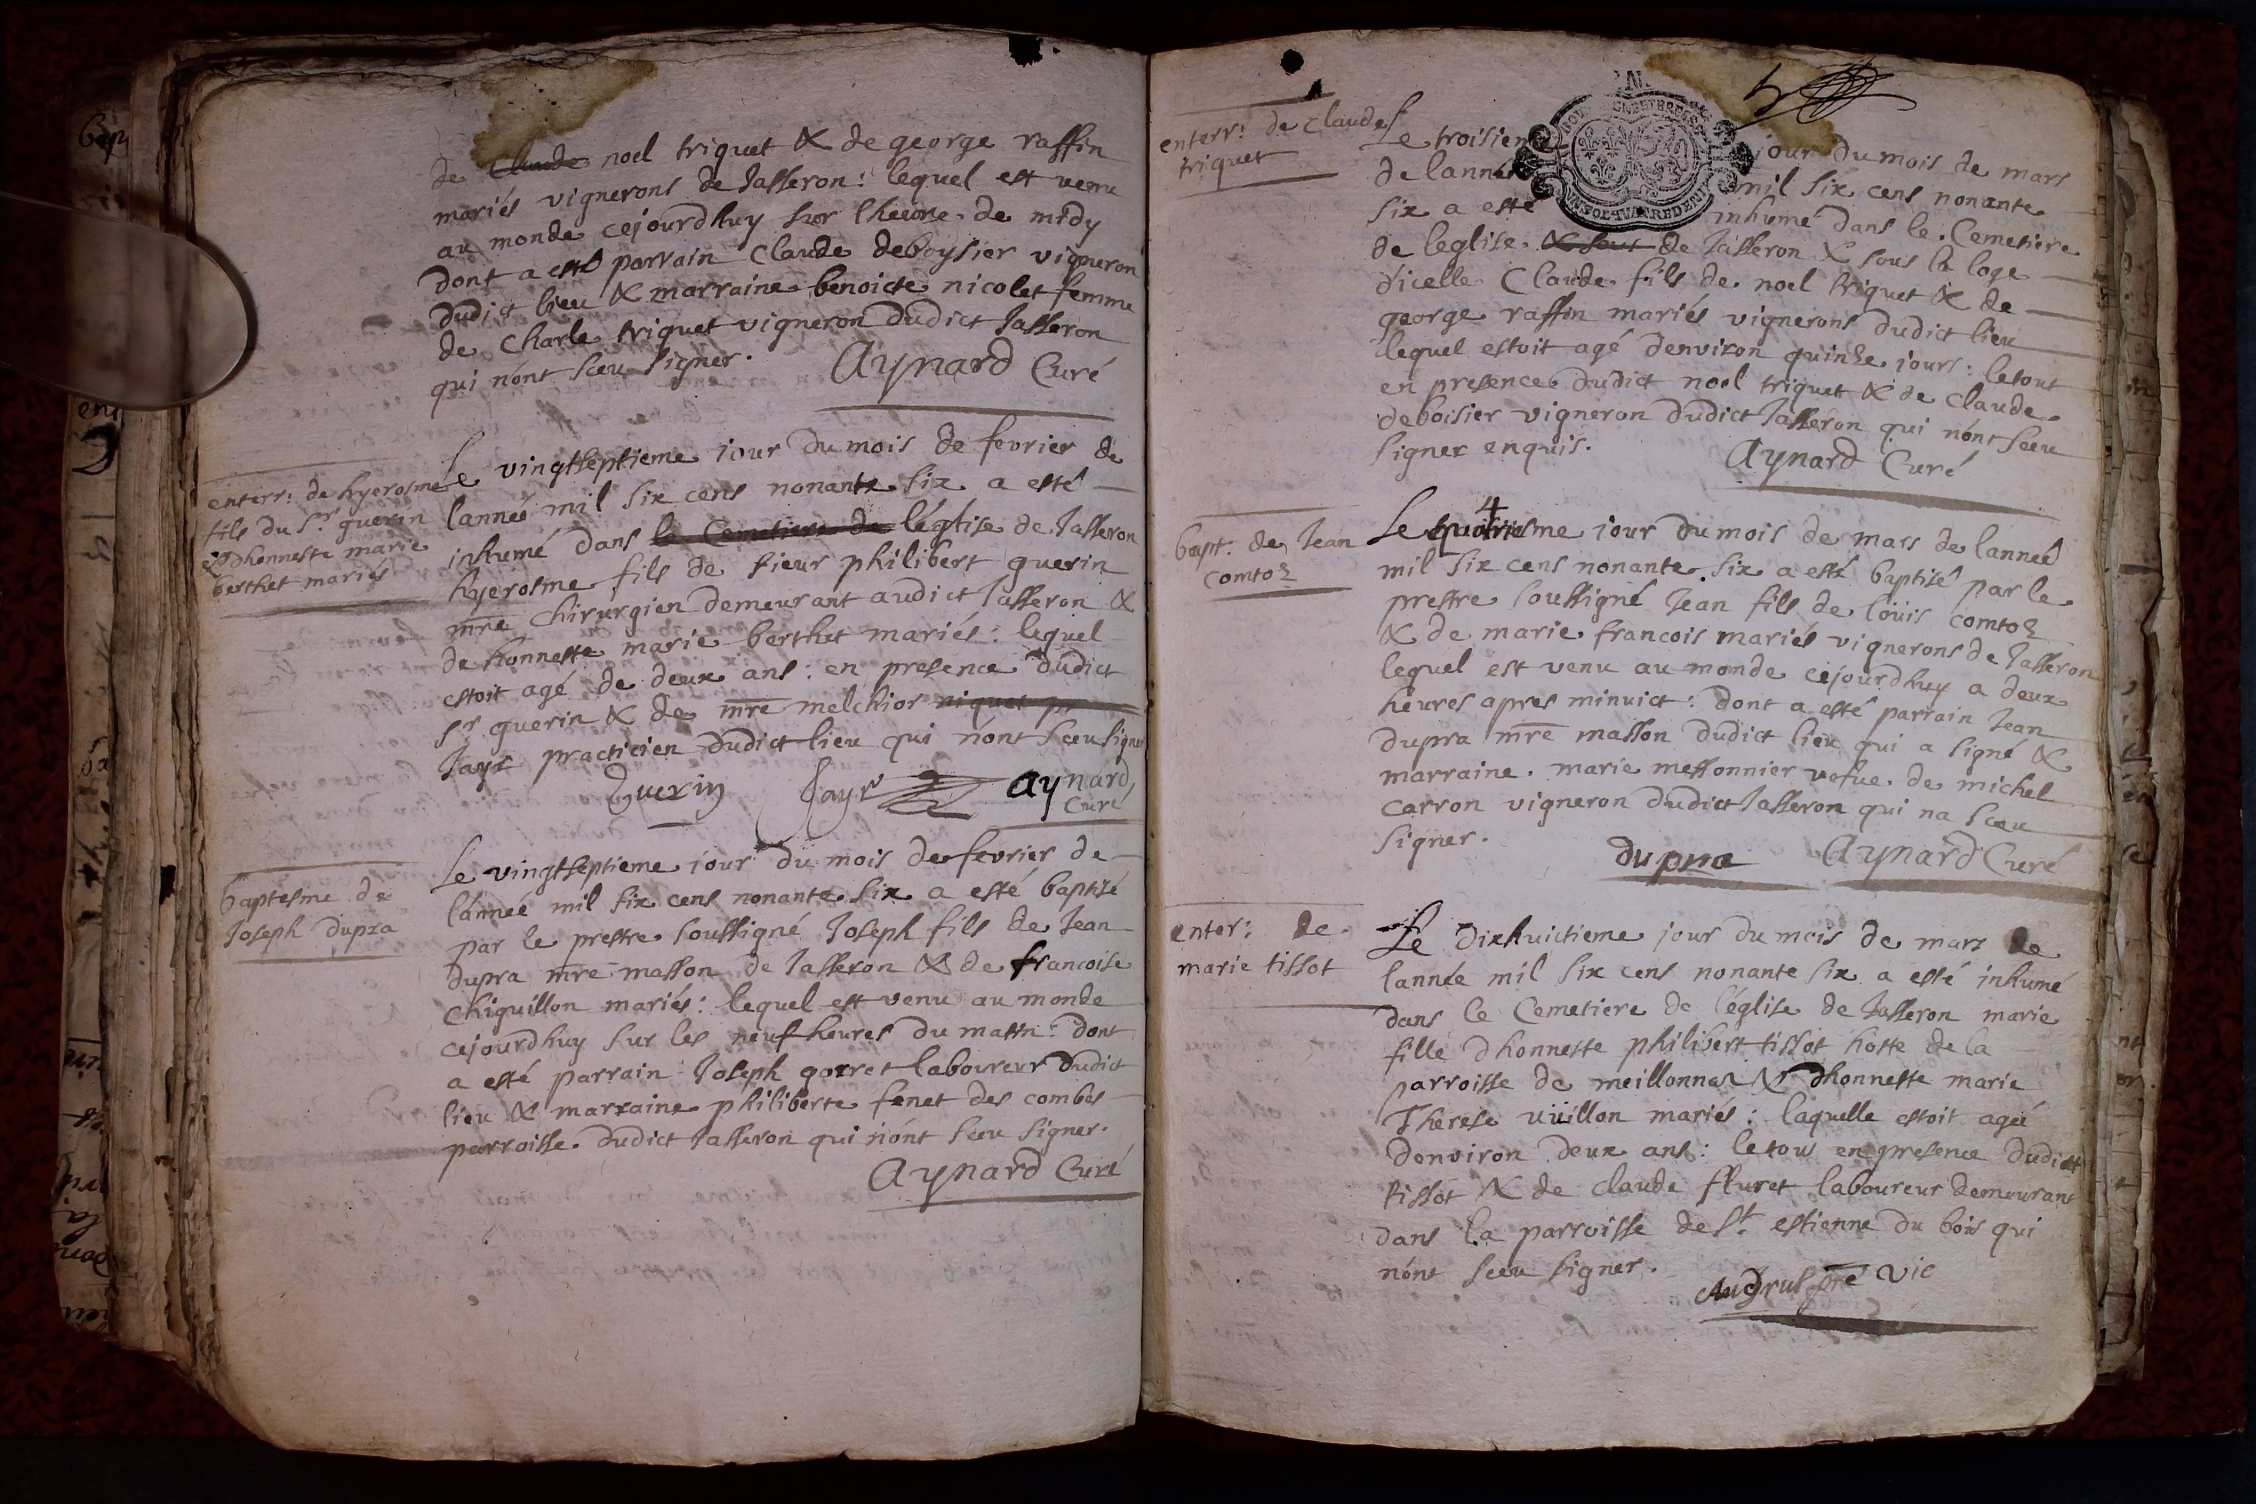 de Claude noel triquet & de george raffin
mariés vignerons de Jasseron: lequel est venu
au monde cejourdhuy sur lheure de midy
dont a esté parrain Claude deboysier vigneron
dudict lieu & marraine benoicte nicolet femme
de Charle triquet vigneron dudict Jasseron
qui nónt sceu signer.
Aynard Curé
enterr: de hyerosme
fils du Sr guerin
& dhonneste marie
berthet mariés
Le vingtseptieme iour du mois de fevrier de
lanneé mil six cens nonante six a esté
inhumé dans le Cemetiere de léglise de Jasseron
hyerosme fils de sieur philibert guerin
mre chirurgien demeurant audict Jasseron &
de honneste marie berthet mariés: lequel
estoit agé de deux ans: en presence dudict
sr guerin & de mre melchior niquet pr
Jayr practicien dudict lieu qui nónt sceu signer
Guerin Jayr Aynard
Curé
baptesme de
Joseph dupra
Le vingtseptieme iour du mois de fevrier de
lánneé mil six cens nonante six a esté baptisé
par le prestre soussigné Joseph fils de Jean
dupra mre masson de Jasseron & de francoise
chiquillon mariés: lequel est venu au monde
cejourdhuy sur les neuf heures du matin: dont
a esté parrain Joseph gorret laboureur dudict
lieu & marraine philiberte fenet des combes
parroisse dudict Jasseron qui nónt sceu signer.
Aynard Curé
5
enterr: de claude
triquet
Le troisieme jour du mois de mars
de lanneé mil six cens nonante
six a esté inhumé dans le Cemetiere
de leglise & sous de Jasseron & sous la loge
dicelle Claude fils de noel triquet & de
george raffin mariés vignerons dudict lieu
lequel estoit agé denviron quinze iours: letout
en presence dudict noel triquet & de claude
deboisier vigneron dudict Jasseron qui nónt sceu
signer enquis.
Aynard Curé
bapt: de Jean
comtoz
4
Le quatriesme iour du mois de mars de lanneé
mil six cens nonante six a esté baptisé par le
prestre soussigné Jean fils de loüis comtoz
& de marie francois mariés vignerons de Jasseron
lequel est venu au monde cejourdhuy a deux
heures apres minuict: dont a esté parrain Jean
dupra mre masson dudict lieu qui a signé &
marraine. marie messonnier vefue de michel
carron vigneron dudict Jasseron qui na sceu
signer.
dupra Aynard Curé
enter: de
marie tissot
Le dixhuictieme jour du mois de mars de
lannée mil six cens nonante six a esté inhumé
dans le Cemetiere de léglise de Jasseron marie
fille dhonneste philibert tissot hoste de la
parroisse de meillonnaz & dhonneste marie
Therese vüillon mariés: laquelle estoit ageé
denviron deux ans: le tout en presence dudict
tissot & de claude fluret laboureur demeurant
dans la parroisse de St estienne du bois qui
nónt sceu signer.
pre vic